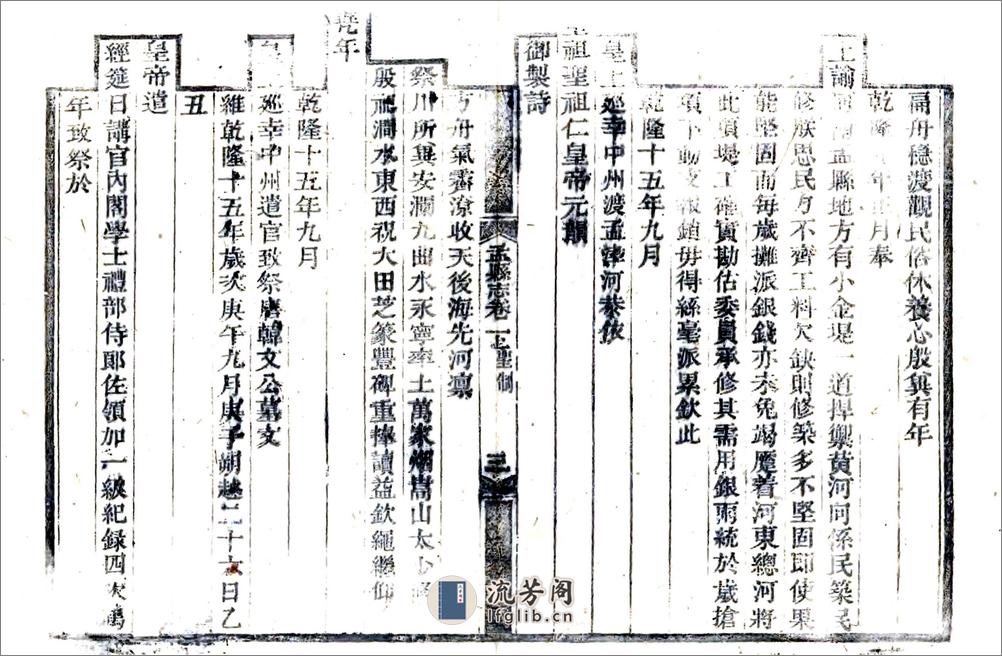 帚舟穩渡觀民俗休養心殷冀有年
乾隆年正月奉
上諭南孟縣地方有小金堤一道捍禦黃河向係民築民
修朕思民力不齊工料欠缺則修築多不堅固即使果
能堅固而每歲攤派銀錢亦未免竭蹷着河東總河將
此項堤工確實勘估委員承修其需用銀兩統於歲搶
項下動支報銷毋得絲毫派累欽此
乾隆十五年九月
皇上廵幸中州渡孟津河恭依
聖祖仁皇帝元韻
御製詩
方舟氣霽涼收天後海先河凜
祭川所冀安瀾九曲水永寧率土萬家烟嵩山太少
殷禮澗水東西祝大田芝篆豐碑重捧讀益欽繩繼仰
堯年
乾隆十五年九月
皇上廵幸中州遣官致祭唐韓文公墓文
維乾隆十五年歲次庚午九月庚子朔越二十六日乙
丑
皇帝遣
經筵日講官內閣學士禮部侍郎佐領加一級紀録四次嵩
年致祭於
孟縣志卷一上 聖制 三
流芳阁
lfglib.cn